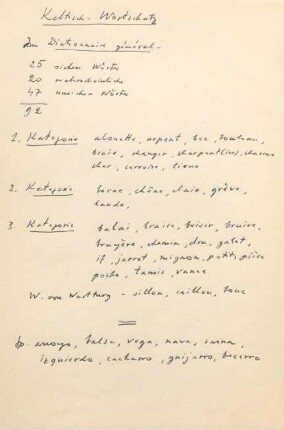 Keltisch - Wortschatz
Im Dictionnaire général -
25 sichere Wörter
20 wahrscheinliche
47 unsichere Wörter
92
1. Kategorie alouette, arpent, bec, tombeau,
braie, changer, charpentier, charrue
char, cervoise, lieue
2. Kategorie borne, chêne, claie, grève,
lande,
3 Kategorie balai, braire, briser, bruire,
bruyère, chemin, dru, galet,
if, jarret, mignon, petit, pièce
poche, tamis, vanne
W. von Wartburg - sillon, caillou, boue
Sp. arroyo, balsa, vega, nava, sarna,
izquierdo, cacharro, guijarro, becerro